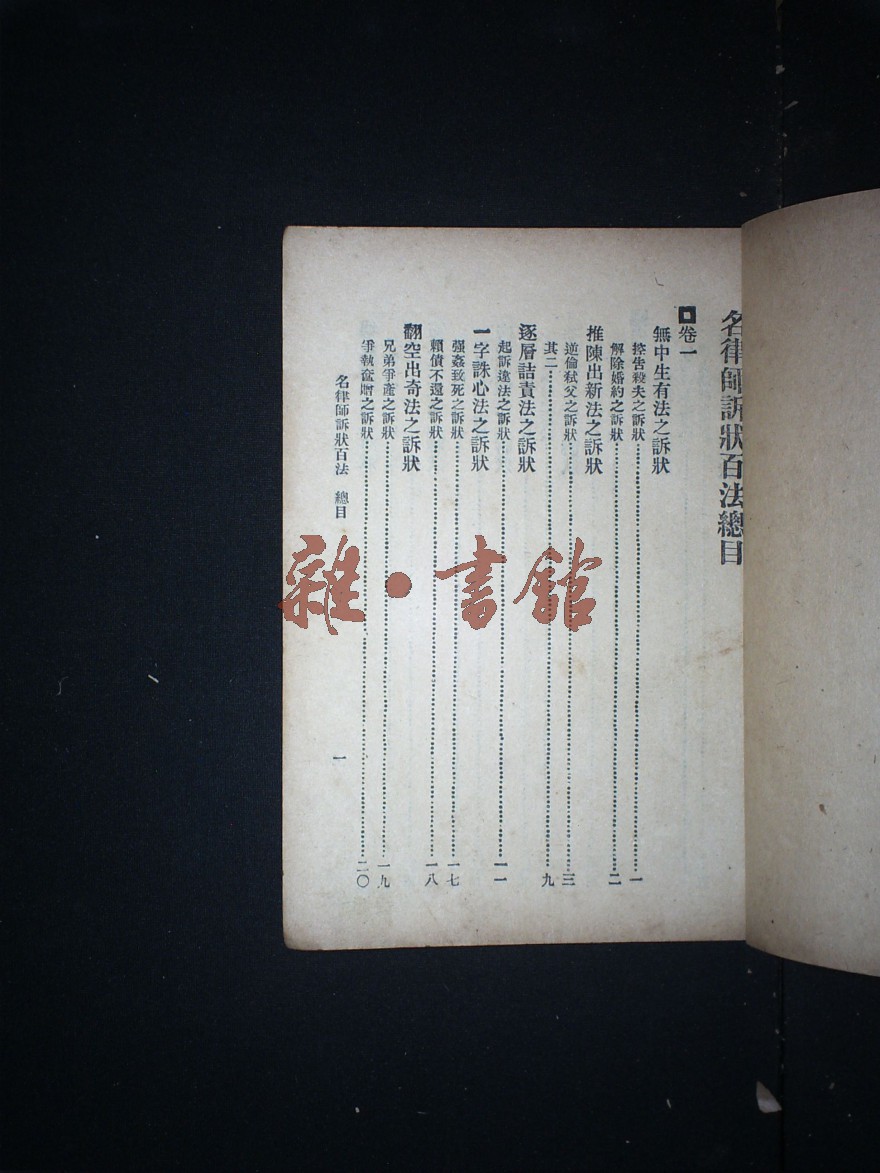 名律師訴狀百法總目
卷一
無中生有法之訴狀
控告殺夫之訴狀 一
解除婚約之訴狀 二
推陳出新法之訴狀
逆倫弒父之訴狀 三
其二 九
逐層詰責法之訴狀
起訴違法之訴狀 一一
一字誅心法之訴狀
强姦致死之訴狀 一七
賴債不還之訴狀 一八
翻空出奇法之訴狀
兄弟爭產之訴狀 一九
爭執奩贈之訴狀 二〇
名律師訴狀百法 總目 一
雜·書館